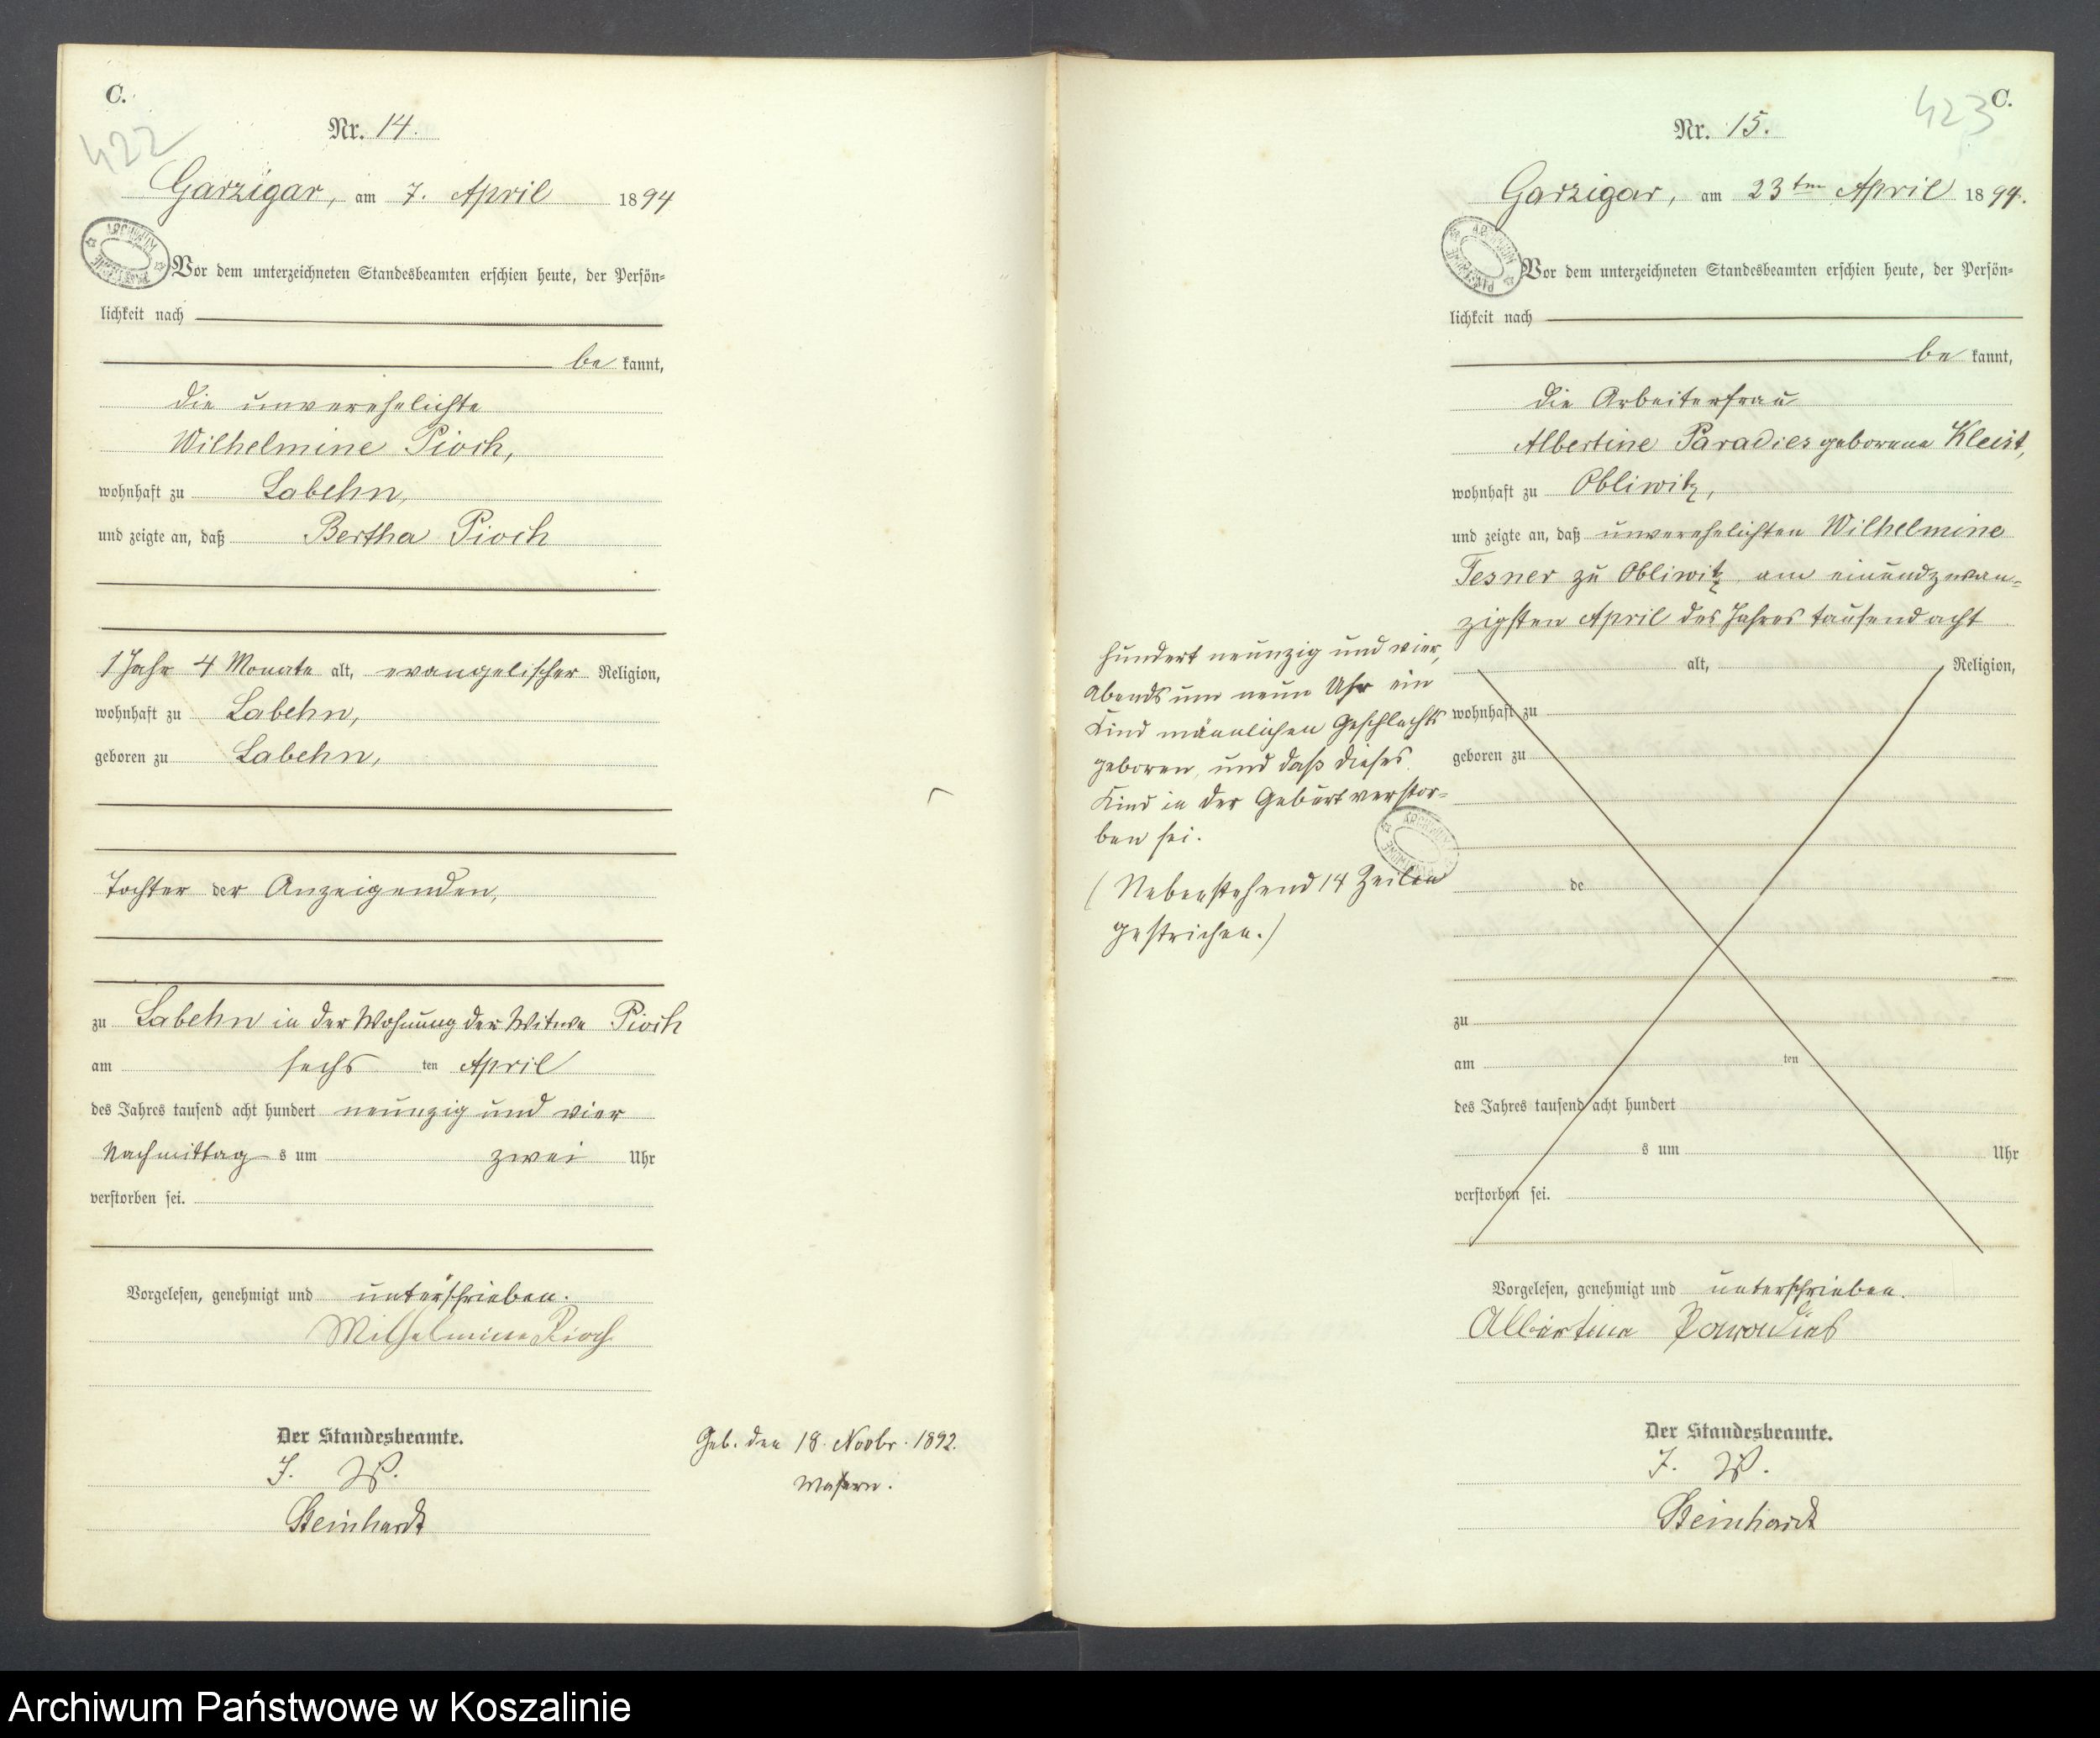 C.
422
Nr. 14.
Garzigar, am 7. April 1894
Vor dem unterzeichneten Standesbeamten erschien heute, der Persön=
lichkeit nach
be kannt,
die unverehelichte
Wilhelmine Pioch,
wohnhaft zu Labehn,
und zeigte an, daß Bertha Pioch
1 Jahr 4 Monate alt, evangelischer Religion,
wohnhaft zu Labehn,
geboren zu Labehn,
Tochter der Anzeigenden,
zu Labehn in der Wohnung der Witwe Pioch
am sechs ten April
des Jahres tausend acht hundert neunzig und vier
Nachmittag s um zwei Uhr
verstorben sei.
Vorgelesen, genehmigt und unterschrieben.
Wilhelmine Pioch
Der Standesbeamte.
J. V.
Steinhardt
Geb. den 18. Novbr. 1892.
C.
423
Nr. 15.
Garzigar, am 23ten April 1894.
Vor dem unterzeichneten Standesbeamten erschien heute, der Persön=
lichkeit nach
be kannt,
die Arbeiterfrau
Albertine Paradies geborene Kleist,
wohnhaft zu Obliwitz,
und zeigte an, daß unverehelichten Wilhelmine
Tesner zu Obliwitz am einundzwan=
zigsten April des Jahres tausend acht
hundert neunzig und vier,
Abends um neun Uhr ein
Kind männlichen Geschlechts
geboren, und daß dieses
Kind in der Geburt verstor=
ben sei.
(Nebenstehend 14 Zeilen
gestrichen.)
alt, Religion,
wohnhaft zu
geboren zu
de
zu
am ten
des Jahres tausend acht hundert
s um Uhr
verstorben sei.
Vorgelesen, genehmigt und unterschrieben.
Albertine Paradies
Der Standesbeamte.
J. V.
Steinhardt
Archiwum Państwowe w Koszalinie